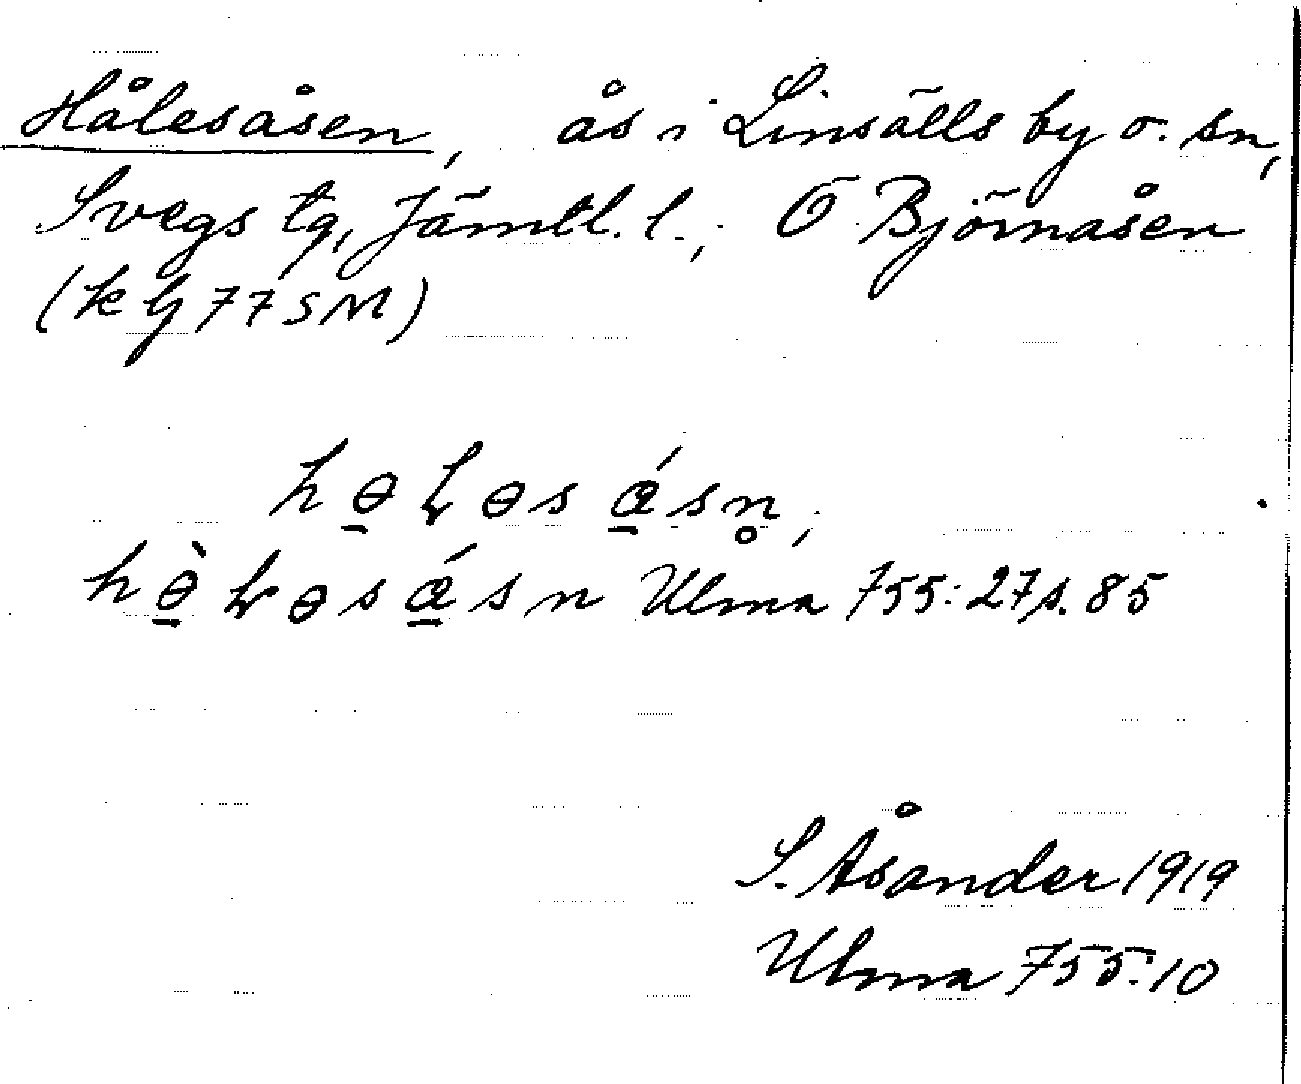 Hålesåsen, ås i Linsälls by o. sn,
Svegs tg, Jämtl. l.; Ö Björnåsen
(k bj 77 SM)
hɵ̱ɽɵsá̱sn̥,
hɵ̱̀ɽɵsá̱sn Ulma 755:27 s. 85
S. Åsander 1919
Ulma 755:10